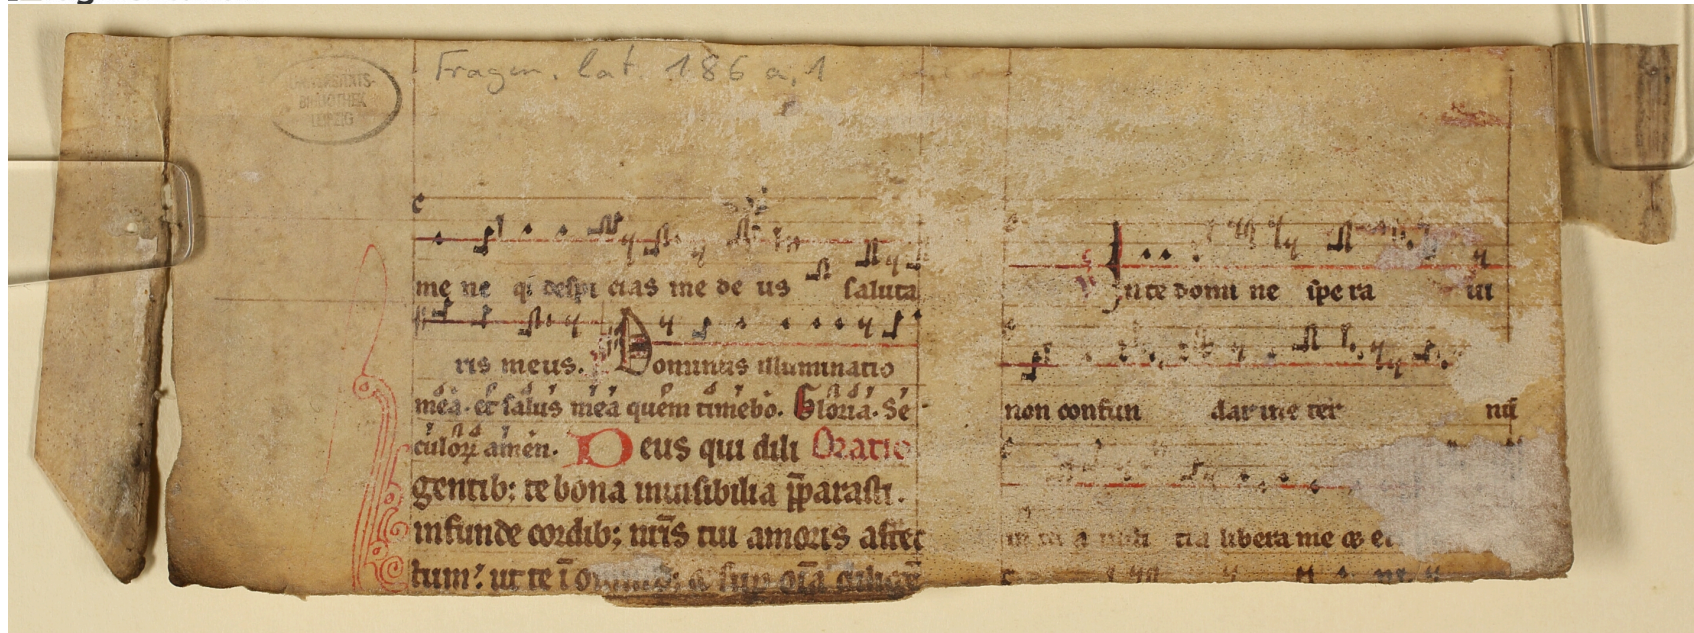 Fragm. lat. 186 a, 1
UNIVERSITÄTS-
BIBLIOTHEK
LEIPZIG
me ne qͥ despi cias me de us saluta
ris meus. Dominus illuminatio
mea. et salus mea quem timebo. Gloria. Se
culoꝝ amen. Deus qui dili Oratio
gentib; te bona inuisibilia p̄parasti.
infunde cordib; nr̄is tui amoris affec
tum: ut te ī
In te domi ne spe ra ui
non confun dar in e ter nū
tia libera me